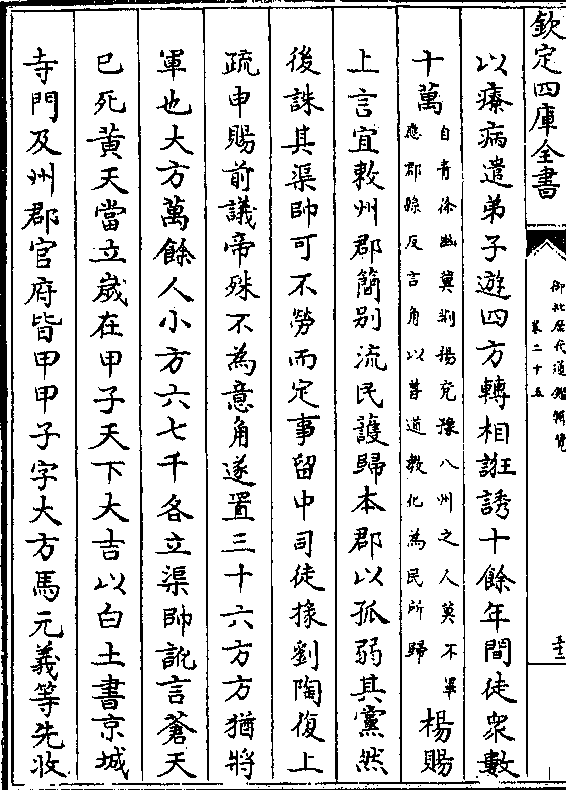 欽定四庫全書
御批歷代通鑑輯覽
卷二十五
以療病遣弟子遊四方轉相誑誘十餘年間徒衆數
十萬自青徐幽冀荆揚兖豫八州之人莫不畢
應郡縣反言角以善道教化為民所歸楊賜
上言宜敕州郡簡别流民護歸本郡以孤弱其黨然
後誅其渠帥可不勞而定事留中司徒掾劉陶復上
疏申賜前議帝殊不為意角遂置三十六方方猶將
軍也大方萬餘人小方六七千各立渠帥訛言蒼天
已死黄天當立嵗在甲子天下大吉以白土書京城
寺門及州郡官府皆甲甲子字大方馬元義等先收